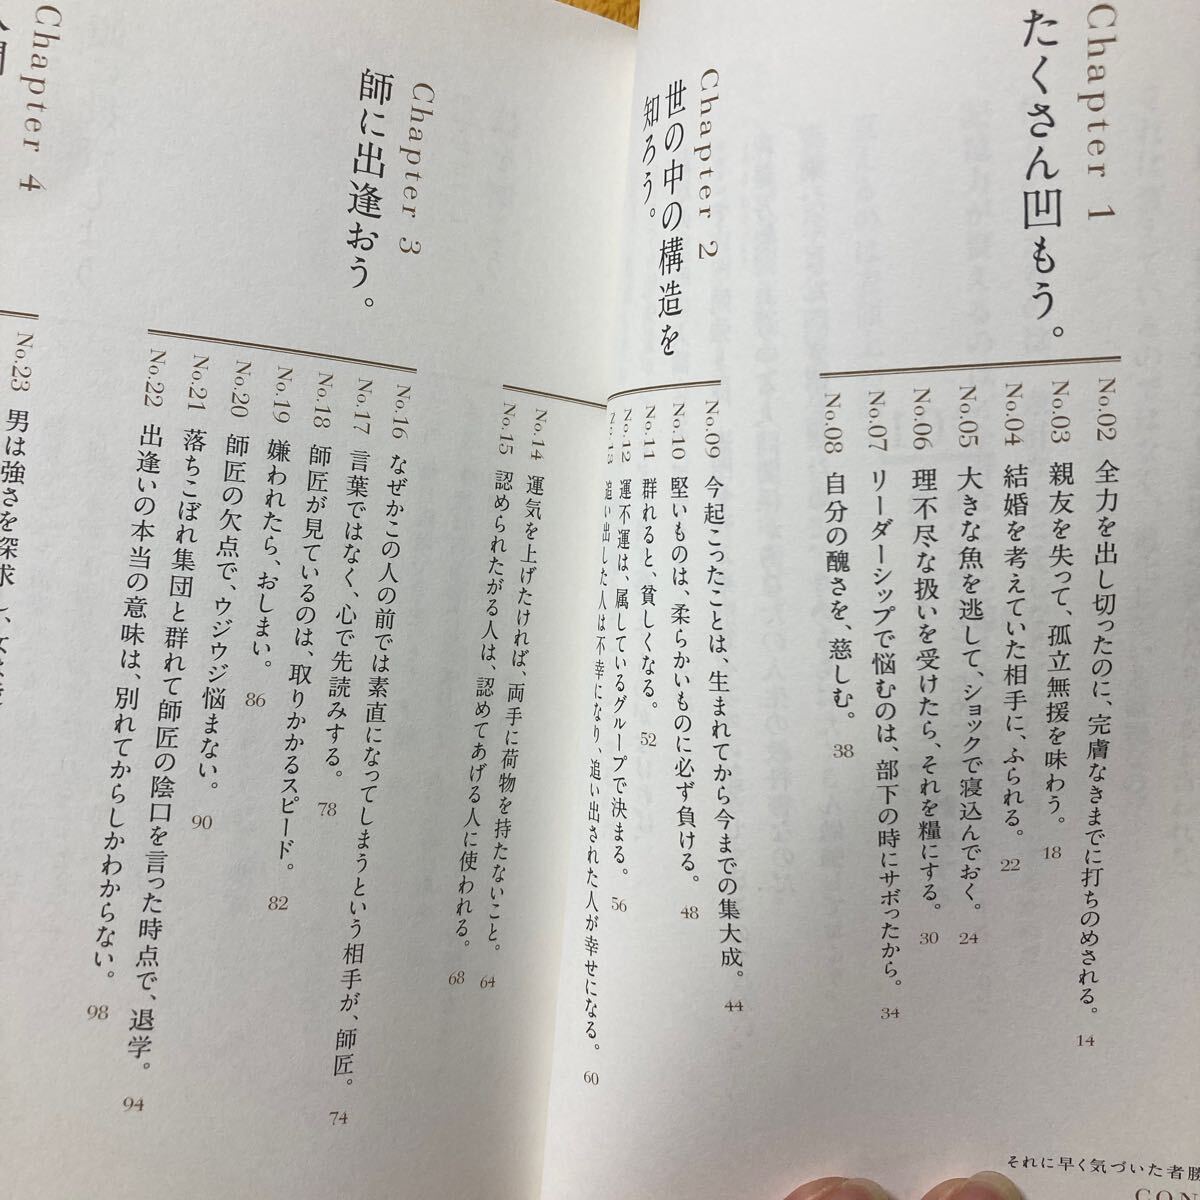 Chapter 1
たくさん凹もう。
No.02 全力を出し切ったのに、完膚なきまでに打ちのめされる。 14
No.03 親友を失って、孤立無援を味わう。 18
No.04 結婚を考えていた相手に、ふられる。 22
No.05 大きな魚を逃して、ショックで寝込んでおく。 24
No.06 理不尽な扱いを受けたら、それを糧にする。 30
No.07 リーダーシップで悩むのは、部下の時にサボったから。 34
No.08 自分の醜さを、慈しむ。 38
Chapter 2
世の中の構造を
知ろう。
No.09 今起こったことは、生まれてから今までの集大成。 44
No.10 堅いものは、柔らかいものに必ず負ける。 48
No.11 群れると、貧しくなる。 52
No.12 運不運は、属しているグループで決まる。 56
No.13 追い出した人は不幸になり、追い出された人が幸せになる。 60
No.14 運気を上げたければ、両手に荷物を持たないこと。 64
No.15 認められたがる人は、認めてあげる人に使われる。 68
Chapter 3
師に出逢おう。
No.16 なぜかこの人の前では素直になってしまうという相手が、師匠。 74
No.17 言葉ではなく、心で先読みする。 78
No.18 師匠が見ているのは、取りかかるスピード。 82
No.19 嫌われたら、おしまい。 86
No.20 師匠の欠点で、ウジウジ悩まない。 90
No.21 落ちこぼれ集団と群れて師匠の陰口を言った時点で、退学。 94
No.22 出逢いの本当の意味は、別れてからしかわからない。 98
Chapter 4
No.23 男は強さを探求し、
それに早く気づいた者勝
CON